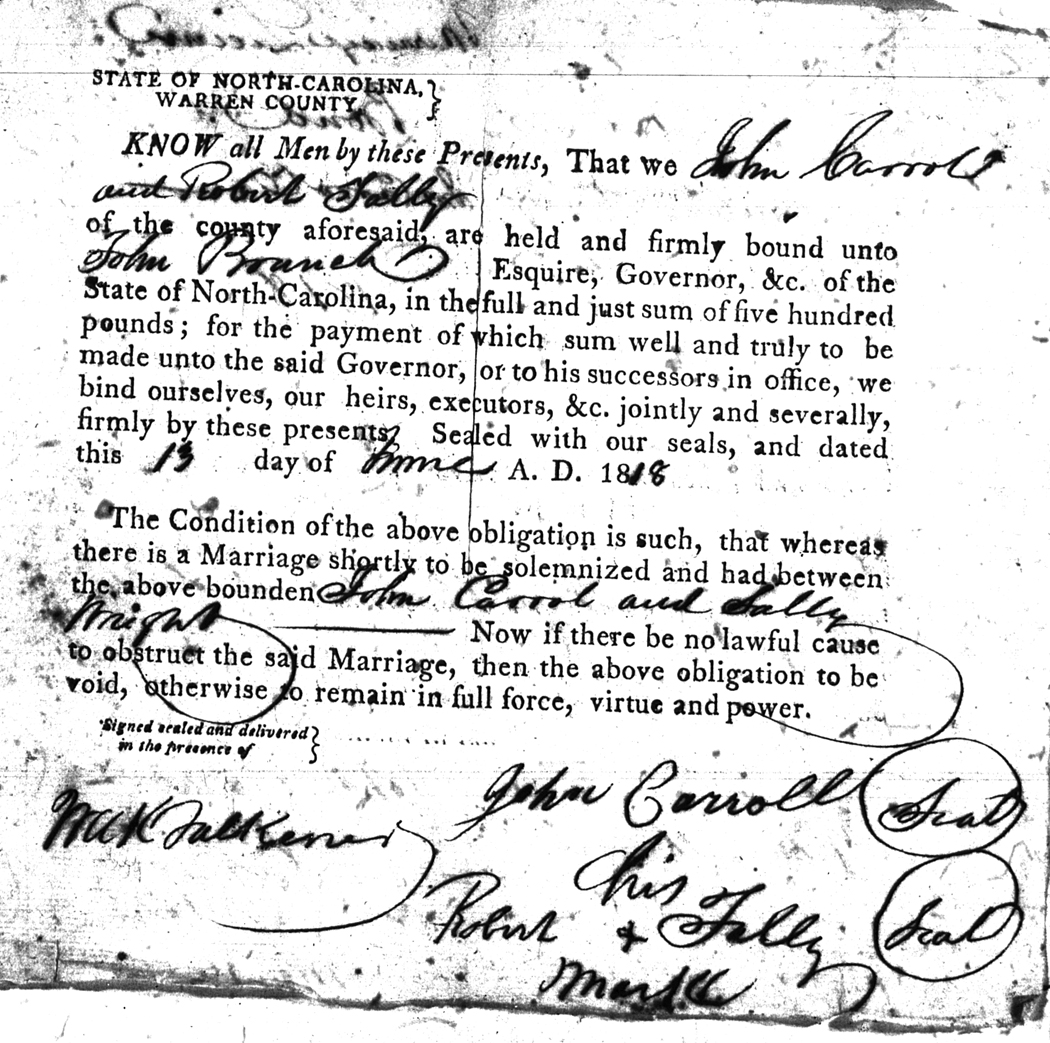 STATE OF NORTH-CAROLINA,
WARREN COUNTY
KNOW all Men by these Presents, That we John Carroll
and Robert Talley
of the county aforesaid, are held and firmly bound unto
John Branch Esquire, Governor, &c. of the
State of North-Carolina, in the full and just sum of five hundred
pounds; for the payment of which sum well and truly to be
made unto the said Governor, or to his successors in office, we
bind ourselves, our heirs, executors, &c. jointly and severally,
firmly by these presents, Sealed with our seals, and dated
this 13 day of June A. D. 1818
The Condition of the above obligation is such, that whereas
there is a Marriage shortly to be solemnized and had between
the above bounden John Carrol and Sally
Wright Now if there be no lawful cause
to obstruct the said Marriage, then the above obligation to be
void, otherwise to remain in full force, virtue and power.
Signed sealed and delivered
in the presence of
John Carroll Seal
Falkener
his
Robert + Talley Seal
mark